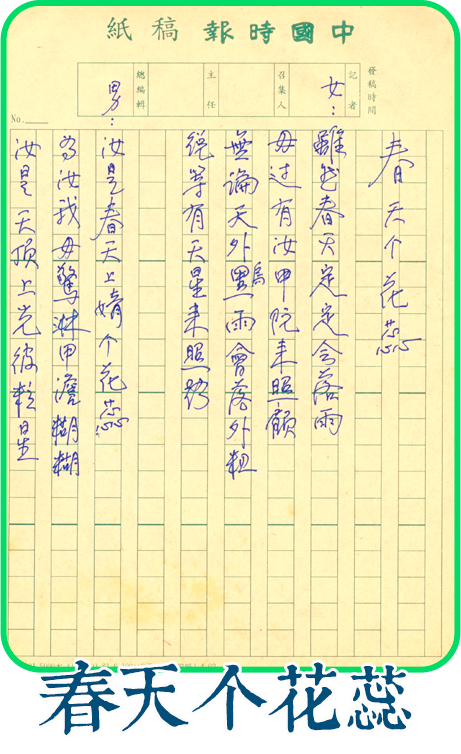 中國時報稿紙
發稿時間
記者
召集人
主任
總編輯
No.
春天个花蕊
女：
雖然春天定定会落雨
毋过有汝甲阮來照顧
無論天外黑烏雨會落外粗
總等有天星來照路
男：
汝是春天上媠个花蕊
為汝我毋驚淋甲澹糊糊
汝是天頂上光彼粒星
春天个花蕊